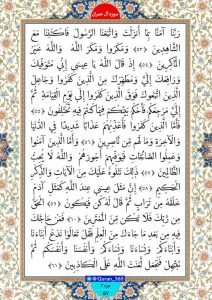 سوره آل عمران
رَبَّنَا آمَنَّا بِمَا أَنْزَلْتَ وَاتَّبَعْنَا الرَّسُولَ فَاكْتُبْنَا مَعَ
الشَّاهِدِينَ ﴿۵۳﴾ وَمَكَرُوا وَمَكَرَ اللَّهُ وَاللَّهُ خَيْرُ
الْمَاكِرِينَ ﴿۵۴﴾ إِذْ قَالَ اللَّهُ يَا عِيسَى إِنِّي مُتَوَفِّيكَ
وَرَافِعُكَ إِلَيَّ وَمُطَهِّرُكَ مِنَ الَّذِينَ كَفَرُوا وَجَاعِلُ
الَّذِينَ اتَّبَعُوكَ فَوْقَ الَّذِينَ كَفَرُوا إِلَى يَوْمِ الْقِيَامَةِ ثُمَّ
إِلَيَّ مَرْجِعُكُمْ فَأَحْكُمُ بَيْنَكُمْ فِيمَا كُنْتُمْ فِيهِ تَخْتَلِفُونَ ﴿۵۵﴾
فَأَمَّا الَّذِينَ كَفَرُوا فَأُعَذِّبُهُمْ عَذَابًا شَدِيدًا فِي الدُّنْيَا
وَالْآخِرَةِ وَمَا لَهُمْ مِنْ نَاصِرِينَ ﴿۵۶﴾ وَأَمَّا الَّذِينَ آمَنُوا
وَعَمِلُوا الصَّالِحَاتِ فَيُوَفِّيهِمْ أُجُورَهُمْ وَاللَّهُ لَا يُحِبُّ
الظَّالِمِينَ ﴿۵۷﴾ ذَلِكَ نَتْلُوهُ عَلَيْكَ مِنَ الْآيَاتِ وَالذِّكْرِ
الْحَكِيمِ ﴿۵۸﴾ إِنَّ مَثَلَ عِيسَى عِنْدَ اللَّهِ كَمَثَلِ آدَمَ
خَلَقَهُ مِنْ تُرَابٍ ثُمَّ قَالَ لَهُ كُنْ فَيَكُونُ ﴿۵۹﴾ الْحَقُّ
مِنْ رَبِّكَ فَلَا تَكُنْ مِنَ الْمُمْتَرِينَ ﴿۶۰﴾ فَمَنْ حَاجَّكَ
فِيهِ مِنْ بَعْدِ مَا جَاءَكَ مِنَ الْعِلْمِ فَقُلْ تَعَالَوْا نَدْعُ أَبْنَاءَنَا
وَأَبْنَاءَكُمْ وَنِسَاءَنَا وَنِسَاءَكُمْ وَأَنْفُسَنَا وَأَنْفُسَكُمْ ثُمَّ
نَبْتَهِلْ فَنَجْعَلْ لَعْنَتَ اللَّهِ عَلَى الْكَاذِبِينَ ﴿۶۱﴾
@Quran_365
جزء ۳
۵۷